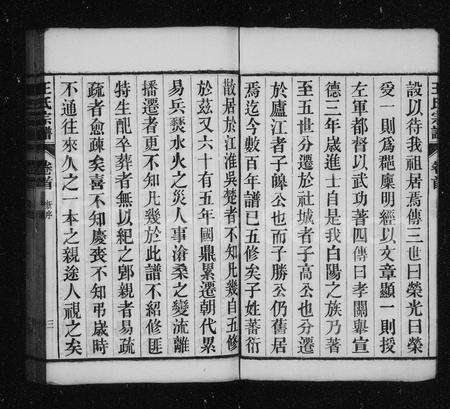 王氏宗譜
卷首
設以待我祖居焉傳三世曰榮光曰榮
受一則為貔糜明經以文章顯一則授
左軍都督以武功著四傳曰孝關舉宣
德三年歲進士自是我白陽之族乃著
至五世分遷於社城者子高公也分遷
於廬江者子皥公也而子勝公仍舊居
焉迄今數百年譜已五修矣子姓蕃衍
散居於江淮吳楚者不知凡幾自五修
於茲又六十有五年國鼎累遷朝代累
易兵燹水火之災人事滄桑之變流離
播遷者更不知凡幾於此譜不紹修匪
特生配卒葬者無以紀之卽親者易疏
疏者愈疎矣喜不知慶喪不知弔歲時
不通往來久之一本之親途人視之矣
王氏宗譜
卷首
序
三